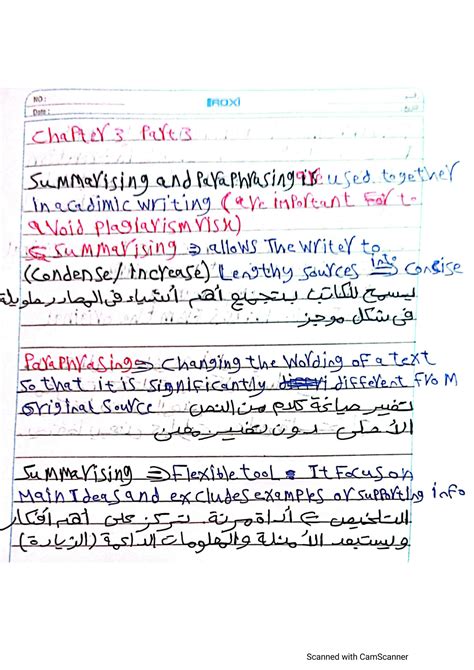 NO:
Date:
ROXI
Chapter 3 Part 3
Summarising and Paraphrasing are used together
In acadimic writing (are important For to
avoid Plagiarism risk)
Summarising ⇒ allows The writer to
(Condense/increase) Lengthy sources into ⇒ Concise
يسمح للكاتب بتجميع أهم أشياء في المصادر طويلة
في شكل موجز
Paraphrasing ⇒ Changing the wording of a text
so that it is significantly different from
original source تغيير صياغة كلام من النص
الأصلي دون تغيير معنى
Summarising ⇒ Flexible tool. It Focus on
Main Ideas and excludes examples or supporting info
التلخيص ⇒ أداة مرنة تركز على أهم أفكار
ويستبعد الأمثلة والمعلومات الداعمة (الزيادة)
Scanned with CamScanner